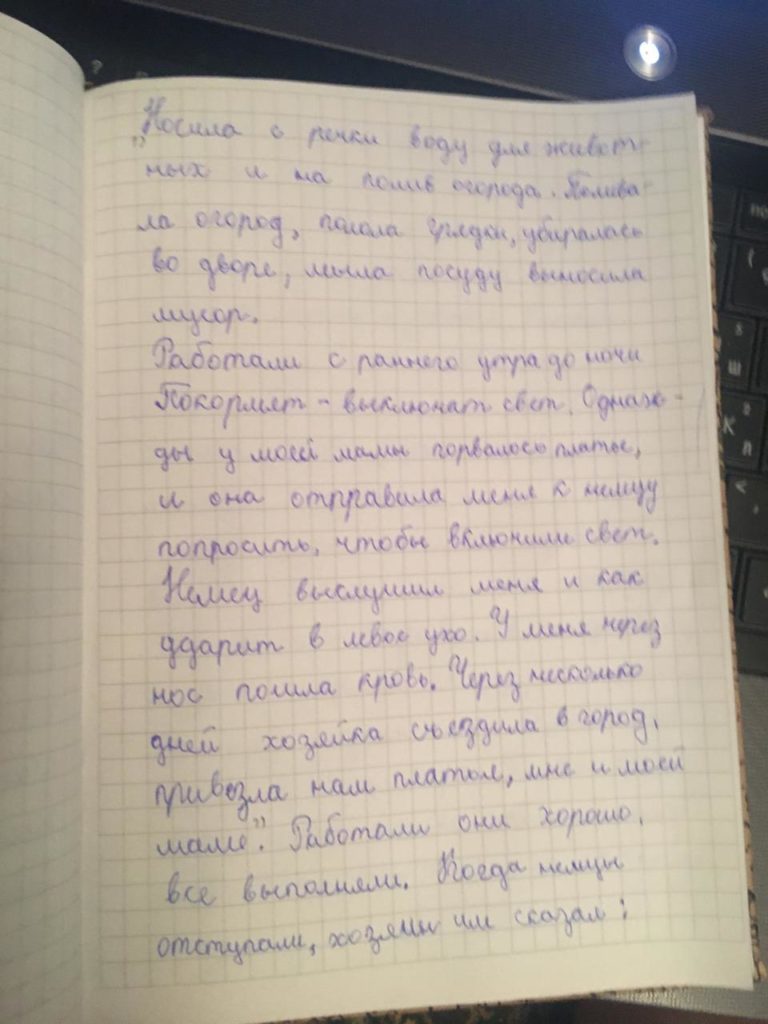 „Носила с речки воду для живот-
ных и на полив огорода. Полива-
ла огород, полола грядки, убиралась
во дворе, мыла посуду выносила
мусор.
Работали с раннего утра до ночи
Покормят - выключат свет. Однаж-
ды у моей мамы порвалось платье,
и она отправила меня к немцу
попросить, чтобы включили свет.
Немец выслушил меня и как
ударит в левое ухо. У меня через
нос пошла кровь. Через несколько
дней хозяйка съездила в город,
привезла нам платья, мне и моей
маме". Работали они хорошо,
все выполняли. Когда немцы
отступали, хозяин им сказал: